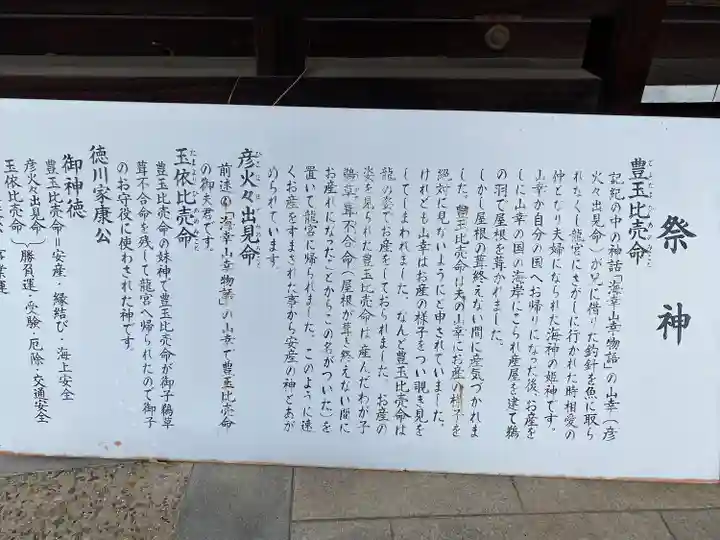 祭神
豊玉比売命
とよたまひめのみこと
記紀の中の神話「海幸山幸物語」の山幸(彦
火々出見命)が兄に借りた釣針を魚に取ら
れなくし龍宮にさがしに行かれた時相愛の
仲となり夫婦になられた海神の姫神です。
山幸が自分の国へお帰りになった後、お産を
しに山幸の国の海岸にこられ産屋を建て鵜
の羽で屋根を葺かれました。
しかし屋根の葺終えない間に産気づかれま
した。豊玉比売命は夫の山幸にお産の様子を
絶対に見ないようにと申されていました。
けれども山幸はお産の様子をつい覗き見を
してしまわれました。なんと豊玉比売命は
龍の姿でお産をしておられました。お産の
姿を見られた豊玉比売命は産んだわが子
鵜草葺不合命(屋根が葺き終えない間に
お産れになったことからこの名がついた)を
置いて龍宮に帰られました。このように速
くお産をすまされた事から安産の神とあが
められています。
彦火々出見命
前述の「海幸山幸物語」の山幸で豊玉比売命
の御夫君です。
玉依比売命
豊玉比売命の妹神で豊玉比売命が御子鵜草
葺不合命を残して龍宮へ帰られたので御子
のお守役に使わされた神です。
徳川家康公
御神徳
豊玉比売命=安産・縁結び・海上安全
彦火々出見命
玉依比売命
勝負運・受験・厄除・交通安全